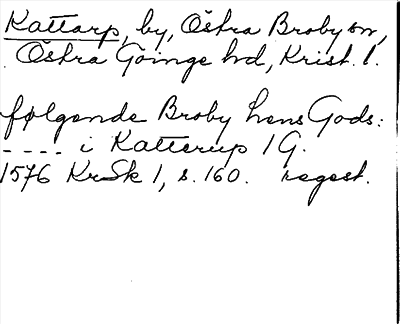 Kattarp, by, Östra Broby sn,
Östra Göinge hd, Krist. l.
følgende Broby Lens Gods:
---- i Katterup 1 G.
1576 KrSk 1, s. 160. regest.